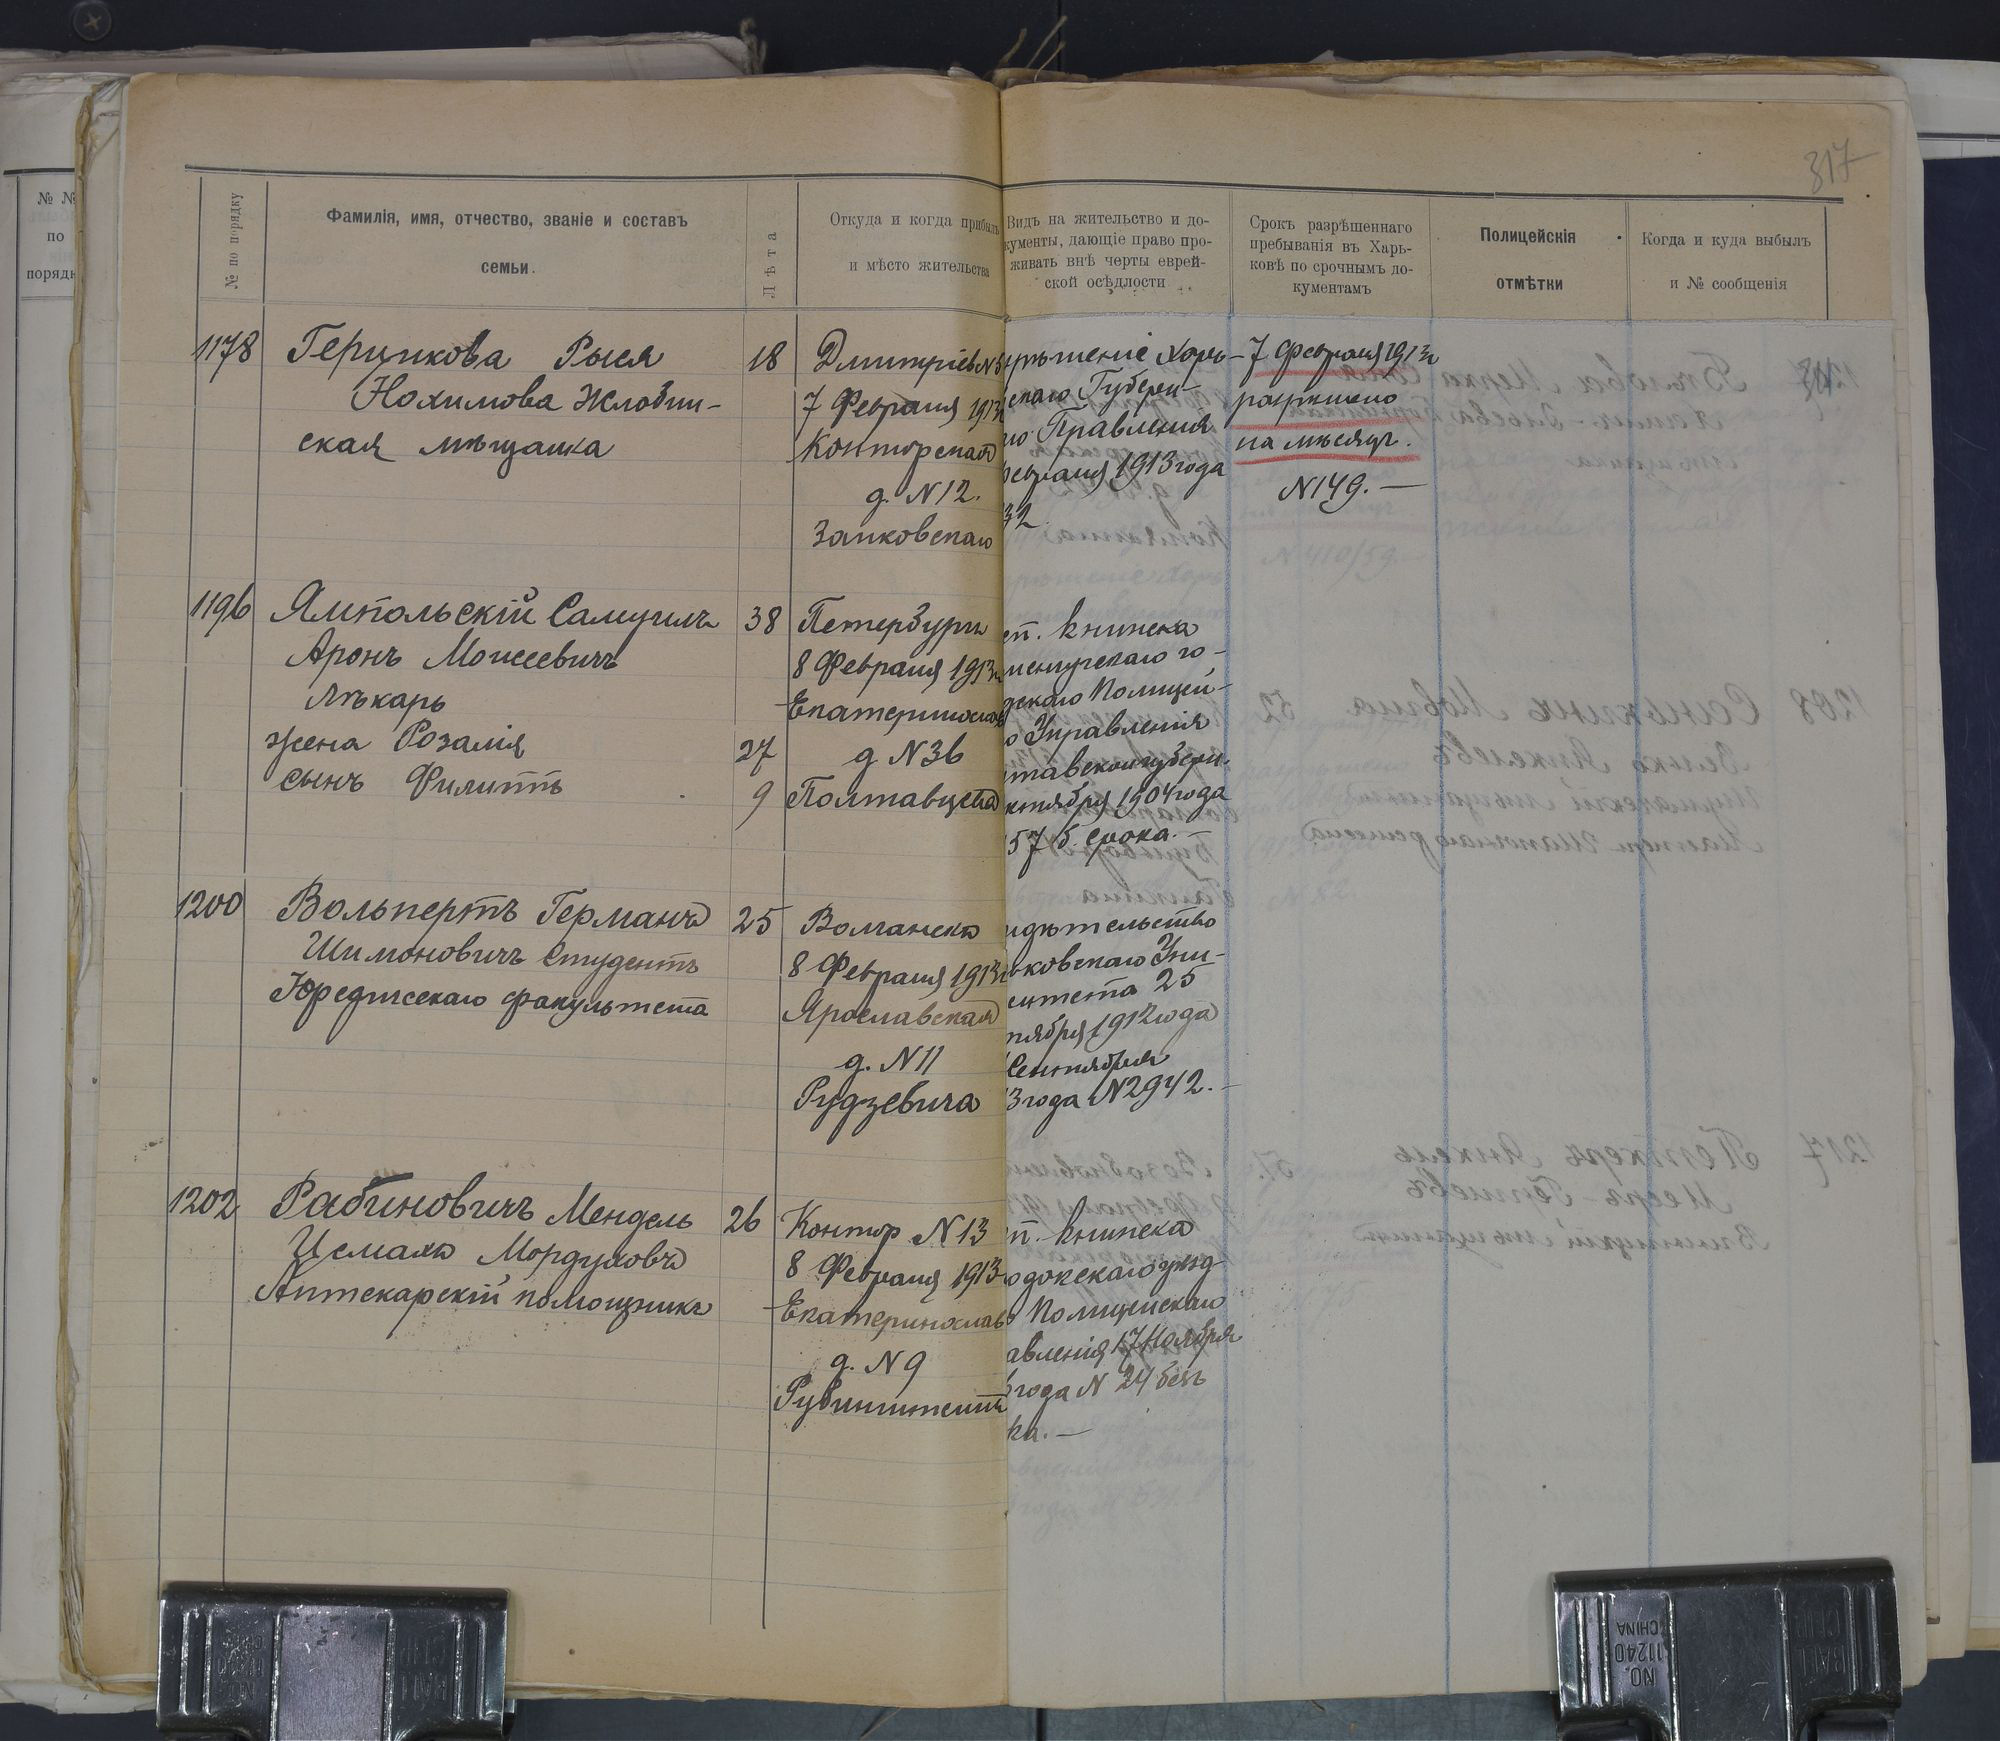 317
№ №
по
порядк
№ по порядку
Фамилія, имя, отчество, званіе и составъ
семьи.
Лѣта
Откуда и когда прибылъ
и мѣсто жительства
Видъ на жительство и до-
кументы, дающіе право про-
живать внѣ черты еврей-
ской осѣдлости
Срокъ разрѣшеннаго
пребыванія въ Харь-
ковѣ по срочнымъ до-
кументамъ
Полицейскія
отмѣтки
Когда и куда выбылъ
и № сообщенія
1178
Герцикова Рыся
Нохимова Жлобин-
ская мѣщанка
18
Дмитріев N
7 Февраля 1913
Конторская
д. N 12.
Заиковскаго
рѣшеніе Харь-
скаго Губерн-
го Правленія
евраля 1913 года
32
7 Февраля 1913 г
разрѣшено
на мѣсяцъ.
N 149. —
1196
Ямпольскій Самуилъ
Аронъ Моисеевичъ
Лѣкарь
жена Розалія
сынъ Филиппъ
38
27
9
Петербургъ
8 Февраля 1913
Екатеринослав
д N 36
Полтавцева
п. книжка
менчугскаго го-
дскаго Полицей-
о Управленія
тавской губерн.
ктября 1904 года
57 б. срока. —
1200
Вольпертъ Германъ
Шимоновичъ Студентъ
Юредическаго факультета
25
Волчанскъ
8 Февраля 1913
Ярославская
д. N 11
Рудзевича
идѣтельство
ковскаго Уни-
ситета 25
тября 1912 года
Сентября
3 года N 2942. —
1202
Рабиновичъ Мендель
Цемахъ Мордуховъ
Аптекарскій помощникъ
26
Контор N 13
8 Февраля 1913
Екатеринослав
д. N 9
Рубинштейнъ
п. книжка
одокскаго уѣзд
Полицейскаго
авленія 17 Ноября
года N 24 безъ
ка. —
NO.
11240
CHINA